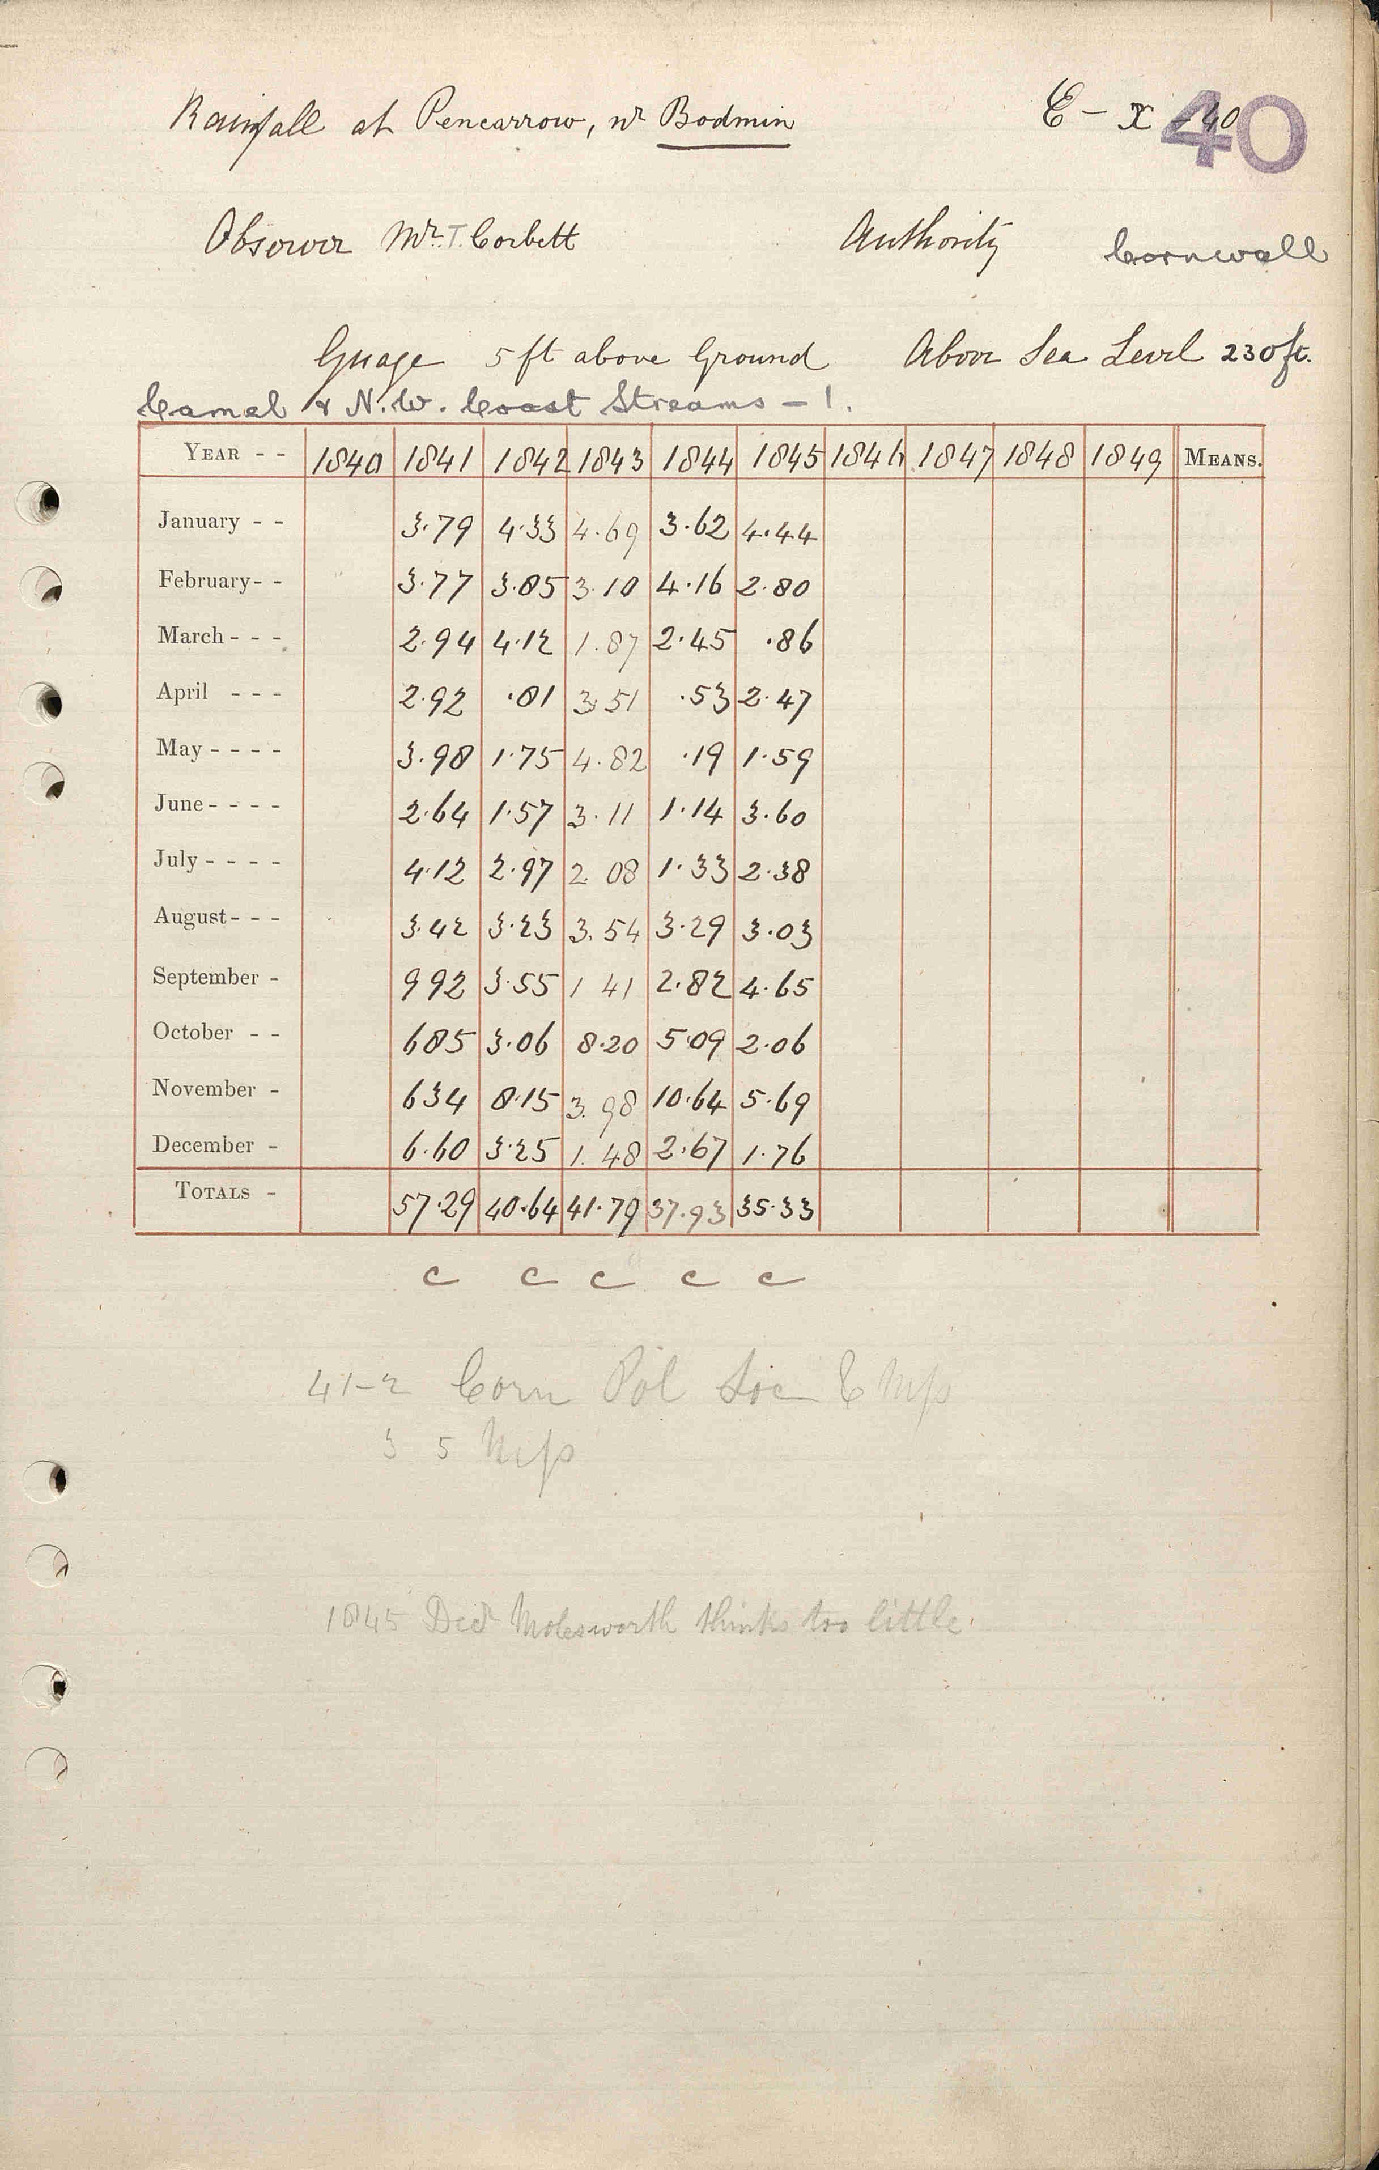 Rainfall at Pencarrow, nr Bodmin E - X - 40 40
Observer Mr. T. Corbett Authority Cornwall
Guage 5 ft above Ground Above Sea Level 230 ft.
Camel & N.W. Coast Streams - 1.
YEAR - - 1840 1841 1842 1843 1844 1845 1846 1847 1848 1849 MEANS.
January - - 3.79 4.33 4.69 3.62 4.44
February - - 3.77 3.85 3.10 4.16 2.80
March - - - 2.94 4.12 1.87 2.45 .86
April - - - 2.92 .81 3.51 .53 2.47
May - - - - 3.98 1.75 4.82 .19 1.59
June - - - - 2.64 1.57 3.11 1.14 3.60
July - - - - 4.12 2.97 2 08 1.33 2.38
August - - - 3.42 3.23 3.54 3.29 3.03
September - 9 92 3.55 1 41 2.82 4.65
October - - 6 85 3.06 8.20 5.09 2.06
November - 6 34 8.15 3.98 10.64 5.69
December - 6.60 3.25 1.48 2.67 1.76
TOTALS - 57.29 40.64 41.79 37.93 35.33
c c c c c
41-2 Corn Pol Soc & Mss
3 5 Mss
1845 Decr Molesworth thinks too little.